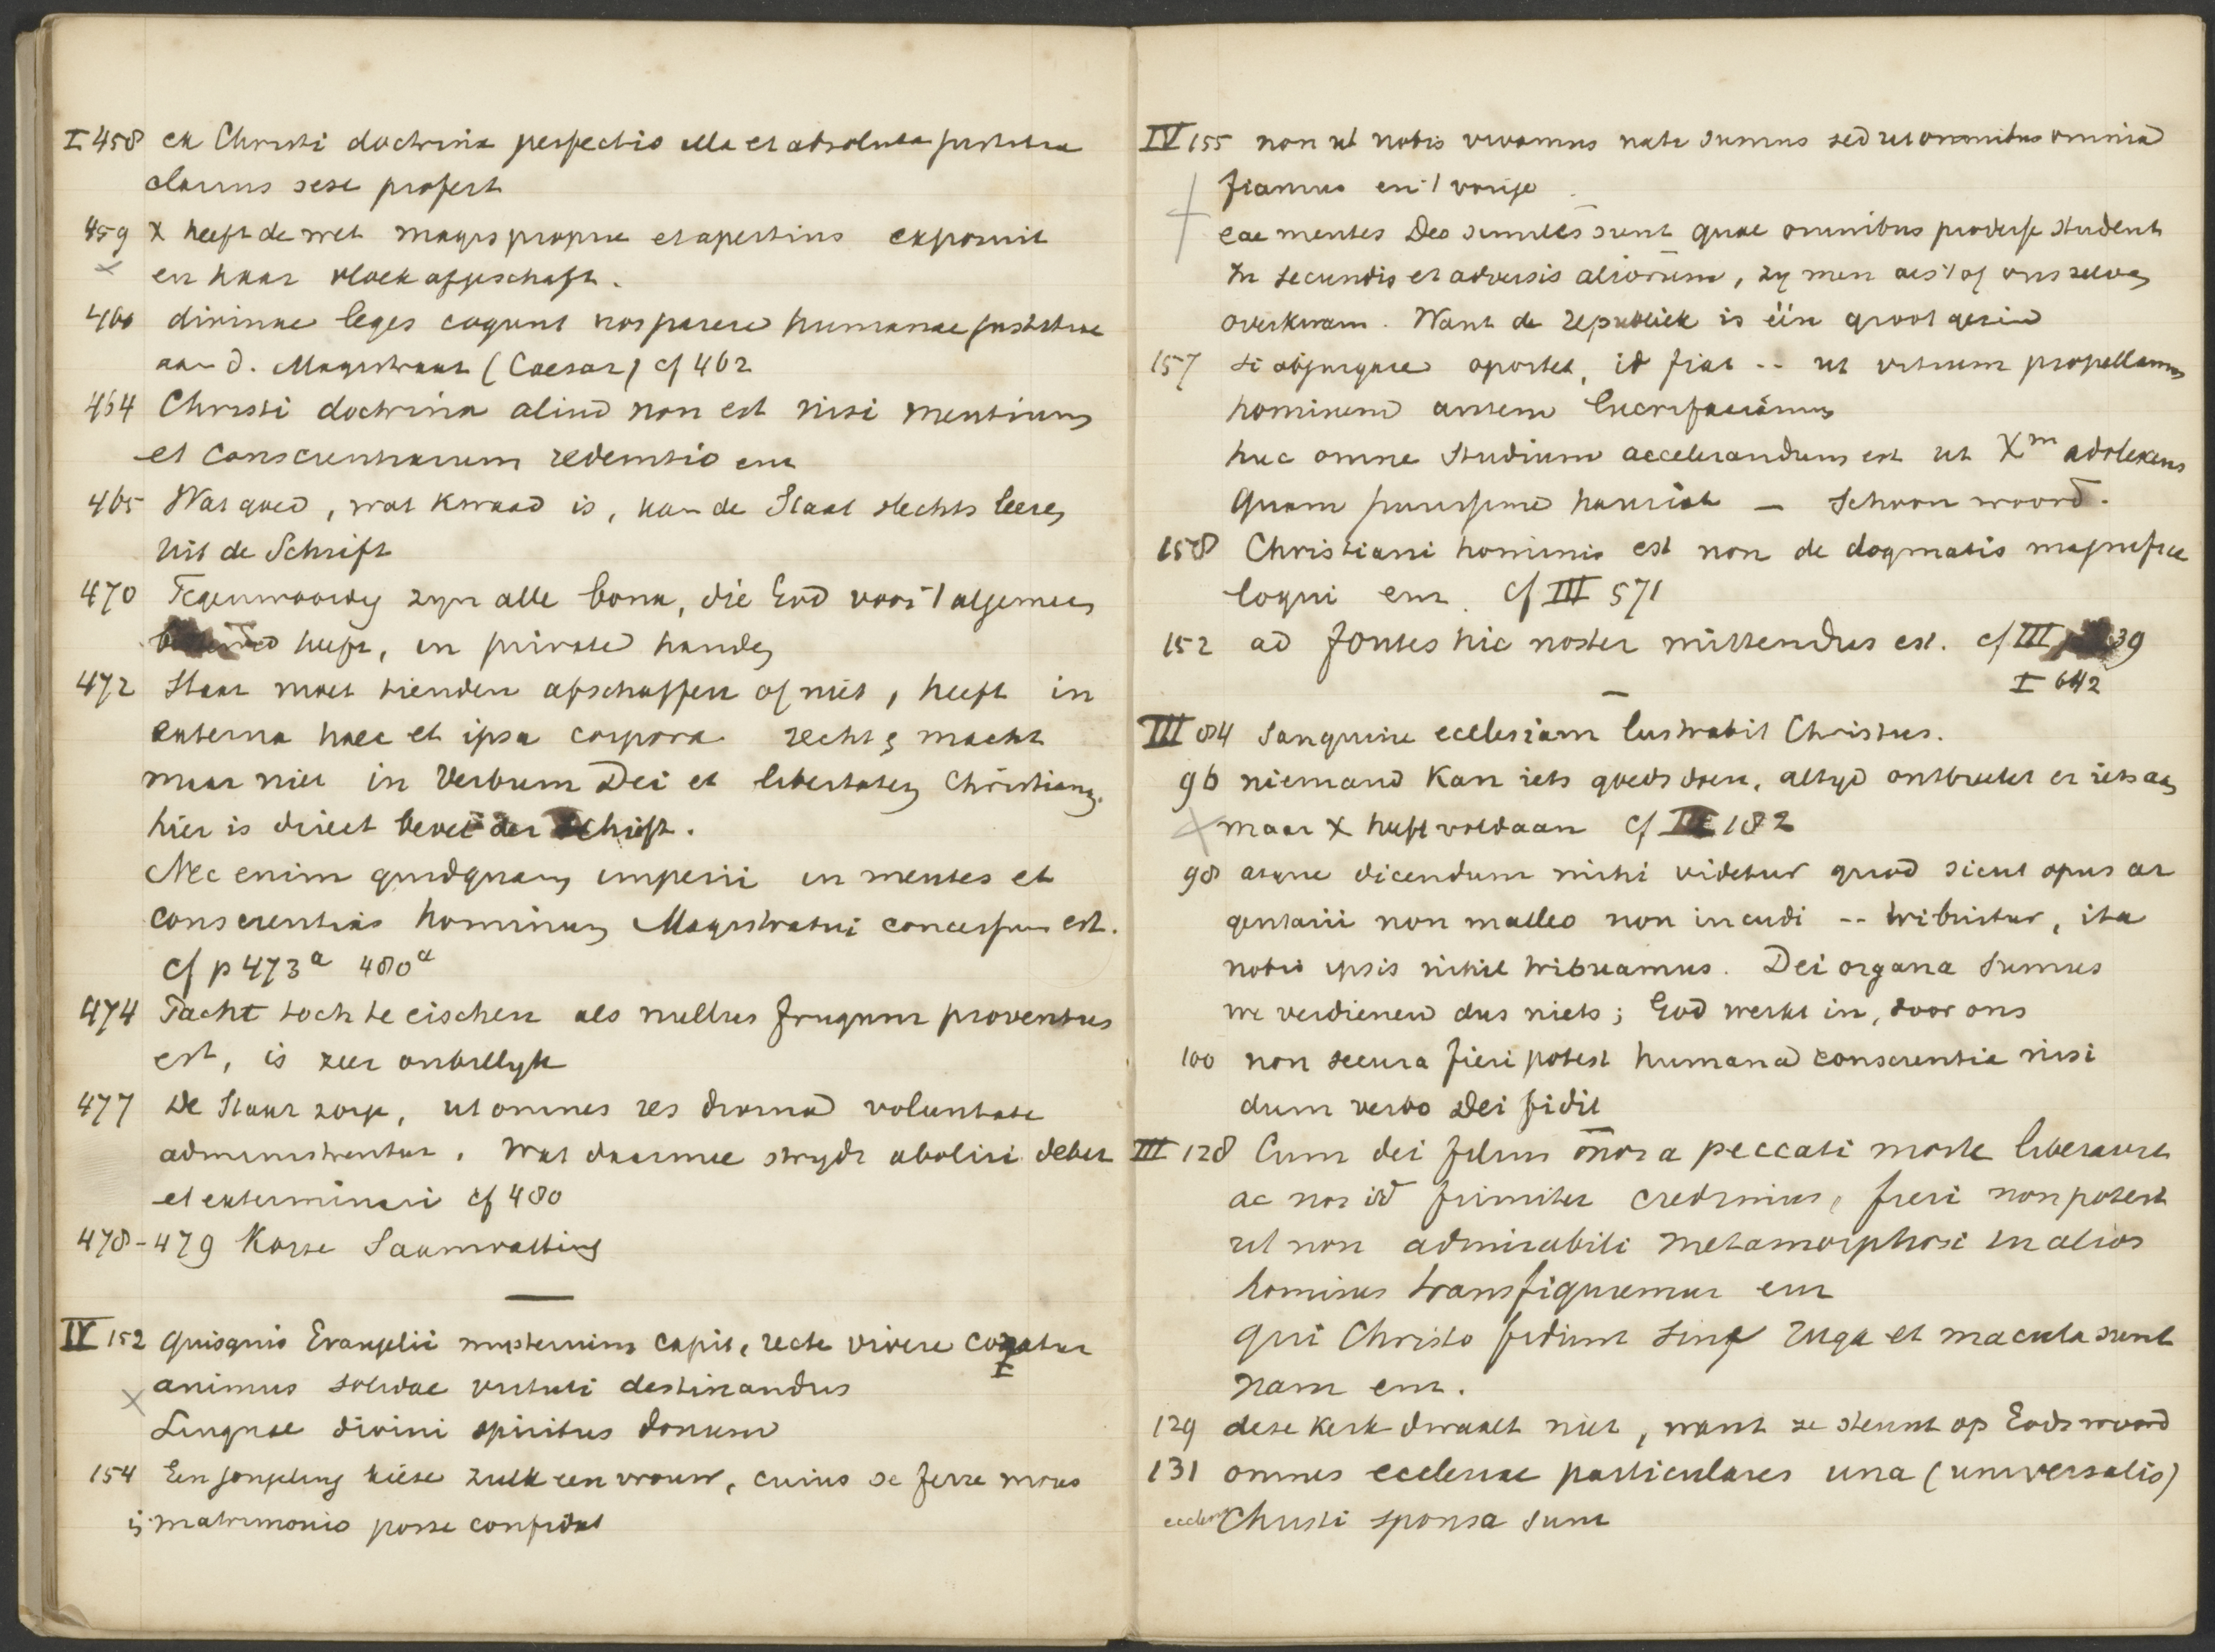 I 458 ex Christi doctrina perfectio illa et absoluta justitia
clarius sese profert
459 X heeft de wet magis proprie et apertius exposuit
x en haar vloek afgeschaft.
460 divinae leges cogunt nos parere humanae justitiae
aan d. Magistraat (Caesar) cf 462
464 Christi doctrina aliud non est nisi mentium
et conscientiarum redemtio enz
465 Wat goed, wat kwaad is, kan de Staat slechts leeren
uit de Schrift
470 Tegenwoordig zyn alle bona, die God voor 't algemeen
heeft, in private handen
472 Staat moet tienden afschaffen of niet, heeft in
externa haec et ipsa corpora recht & macht
maar niet in Verbum Dei et libertatem Christianam.
hier is direct bevel der Schrift.
Nec enim quidquam imperii in mentes et
conscientias hominum Magistratui concessum est.
cf p 473a 480a
474 Pacht toch te eischen als nullus frugum proventus
est, is zeer onbillyk
477 De Staat zorge, ut omnes res divina voluntate
administrentur. Wat daarmee strydt aboliri debet
et exterminari cf 480
478-479 Korte Saamvatting
IV 152 quisquis Evangelii mysterium capit, recte vivere conatur
x animus solidae virtuti destinandus
I
Linguae divini spiritus donum
154 Een jongeling kieze zulk een vrouw, cuius se ferre mores
in matrimonio posse confidat
IV 155 non ut nobis vivamus nati sumus sed ut omnibus omnia
fiamus en 't vorige
eae mentes Deo similes sunt quae omnibus prodesse student
In secundis et adversis aliorum, zy men als 't of ons zelven
overkwam. Want de republiek is één groot gezin
157 si objurgare oportet, id fiat -- ut vitium propellamus
hominem autem lucrifaciamus
huc omne studium accelerandum est ut Xm adolescens
quam purissime hauriat — schoon woord.
158 Christiani hominis est non de dogmatis magnifice
loqui enz. cf III 571
152 ad fontes hic noster mittendus est. cf III 39
I 642
III 84 Sanguine ecclesiam lustrabit Christus.
96 niemand kan iets goeds doen, altyd ontbreekt er iets aan
x maar X heeft voldaan cf III 182
98 atque dicendum mihi videtur quod sicut opus ar
gentarii non malleo non incudi -- tribuitur, ita
nobis ipsis nihil tribuamus. Dei organa sumus
we verdienen dus niets; God werkt in, door ons
100 non secura fieri potest humana conscientia nisi
dum verbo Dei fidit
III 128 Cum dei filius om̄es a peccati morte liberaverit
ac nos id firmiter credimus, fieri non potest
ut non admirabili metamorphosi in alios
homines transfiguremur enz
qui Christo fidunt sine ruga et macula sunt
nam enz.
129 deze kerk dwaalt niet, want ze steunt op Gods woord
131 omnes ecclesiae particulares una (universalis)
eccles Christi sponsa sunt